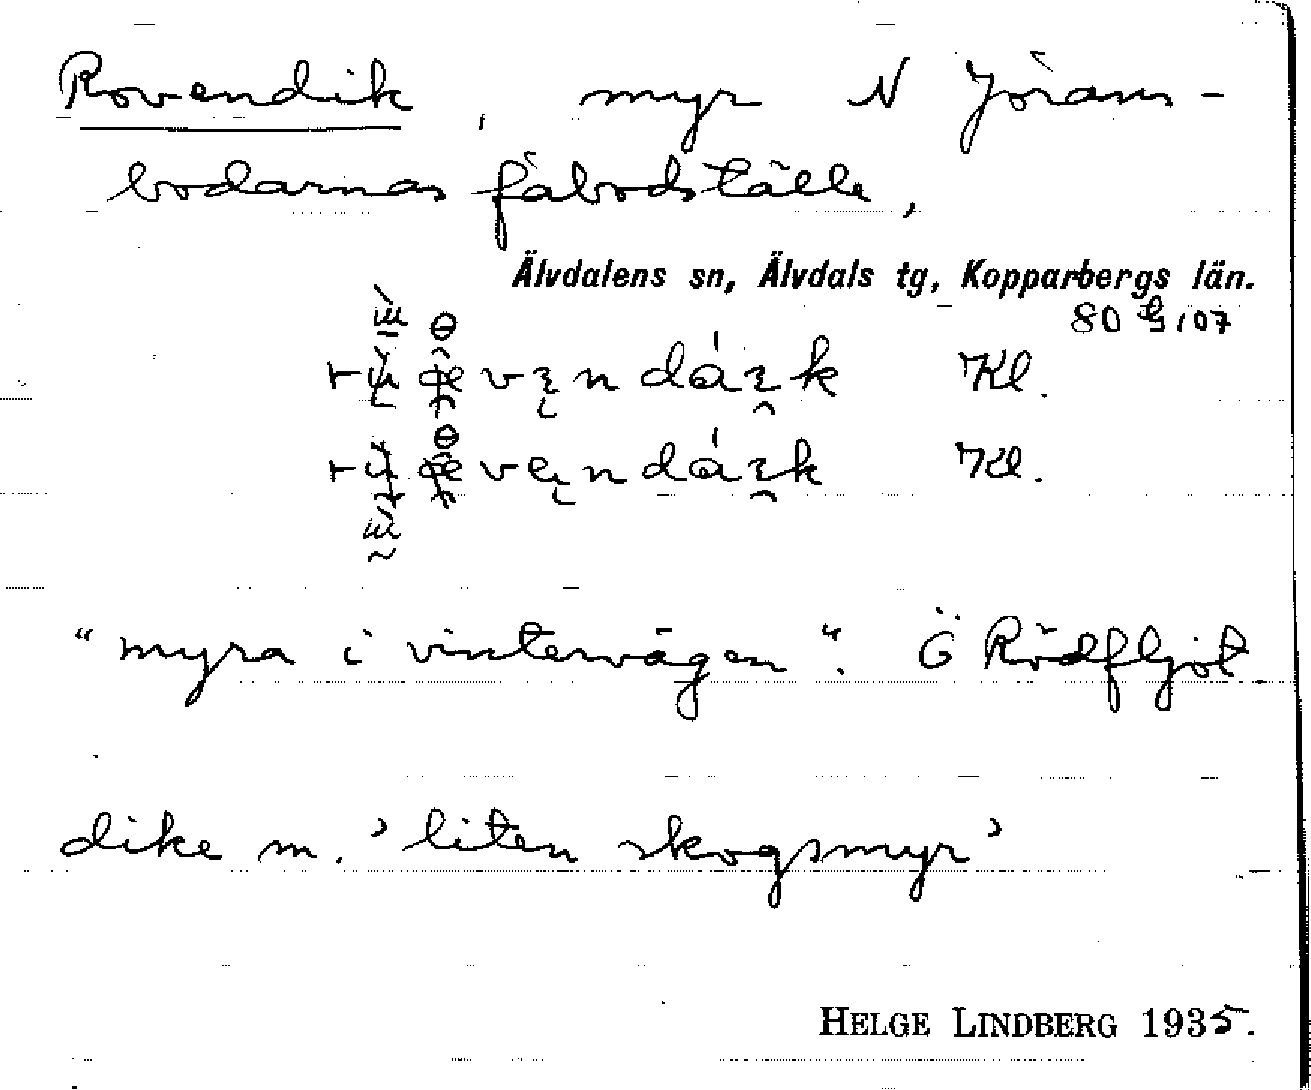 Rovendik, myr N Jöräns-
bodarnas fäbodställe,
Älvdalens sn, Älvdals tg, Kopparbergs län.
80 G 107
Kl.
Kl.
"myra i vintervägen". Ö Rödfljöt
dike m. 'liten skogsmyr'
HELGE LINDBERG 1935.